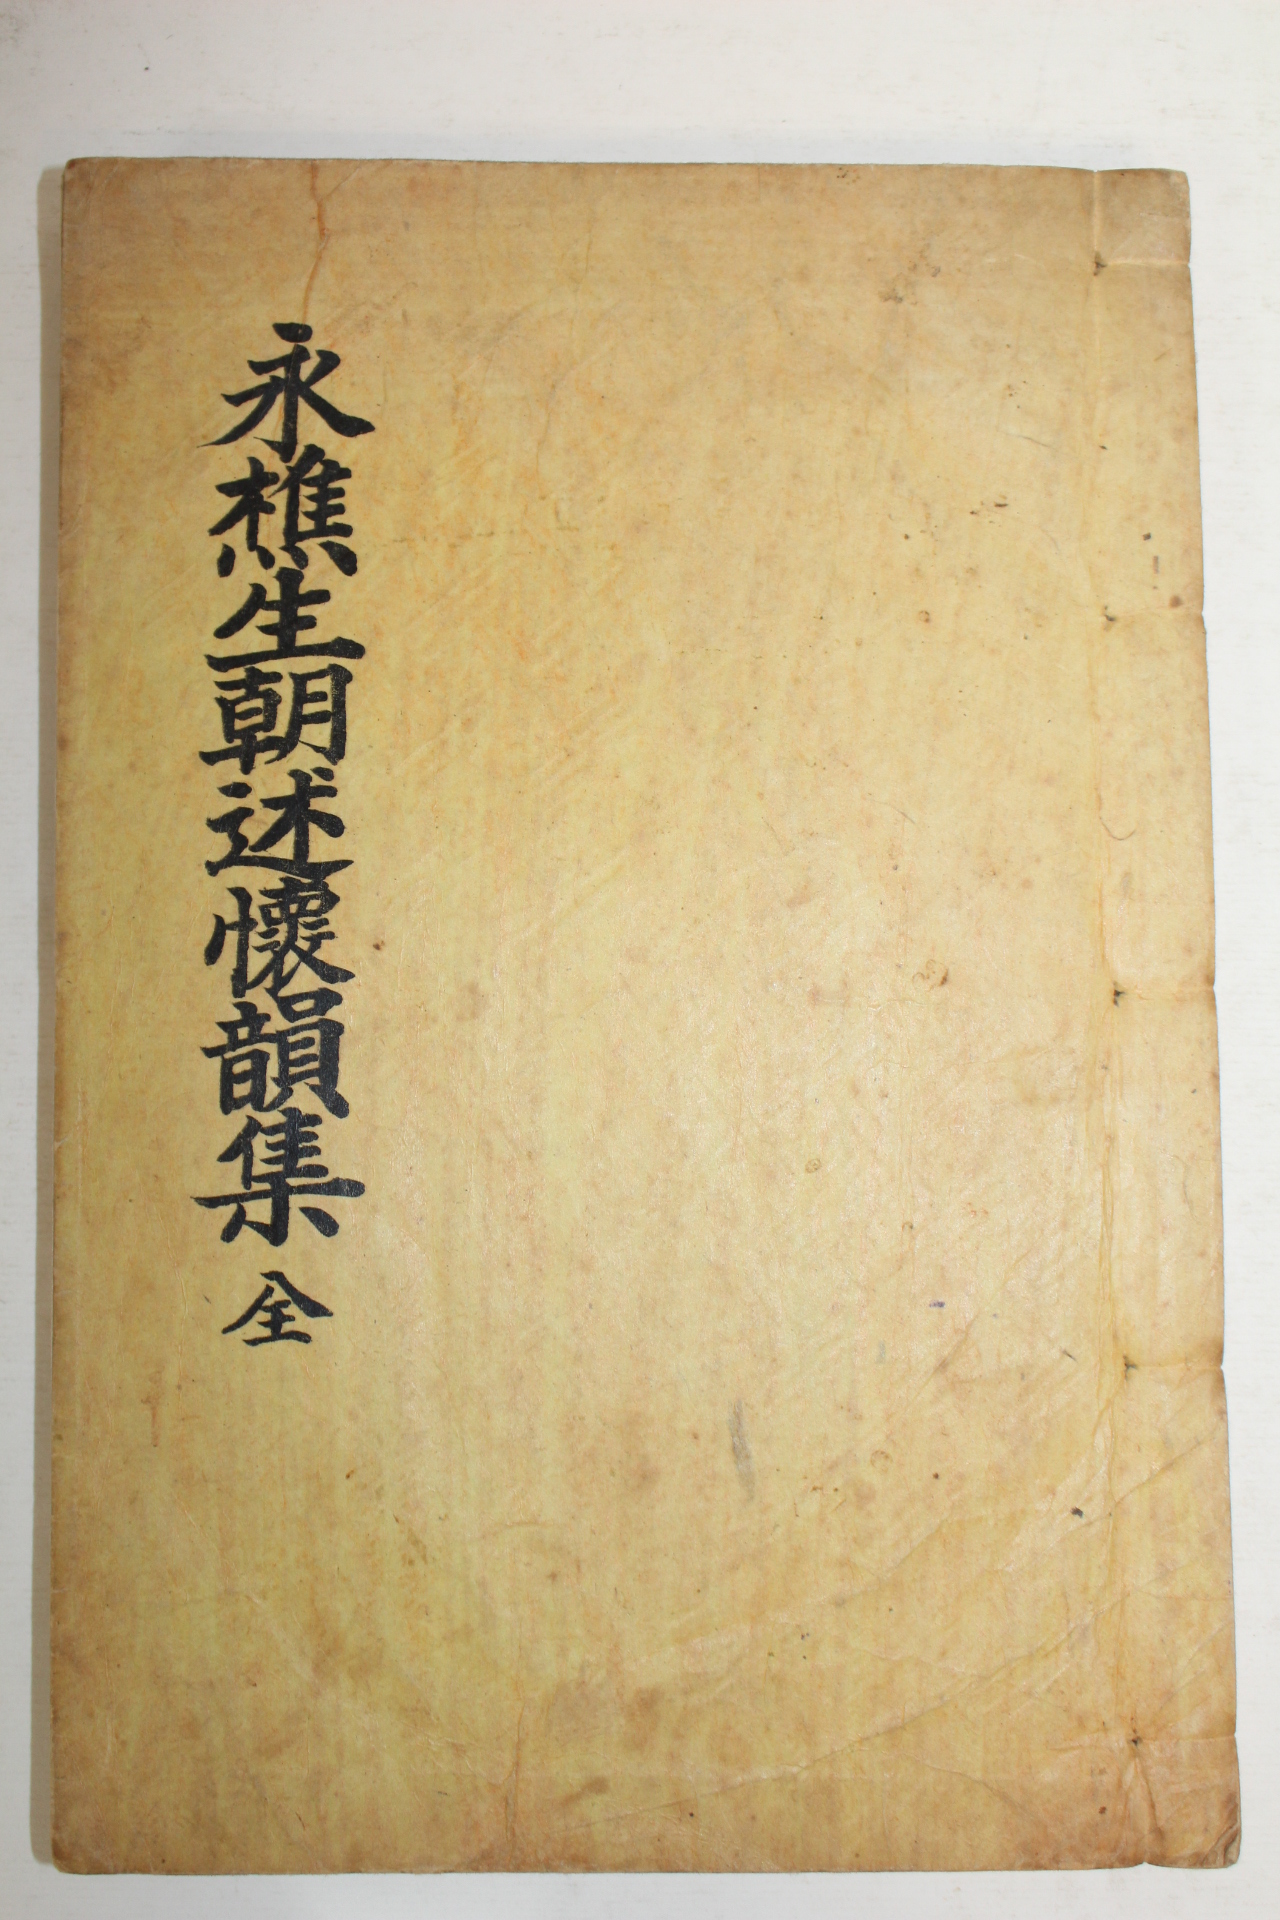 永樵生朝述懷韻集 全